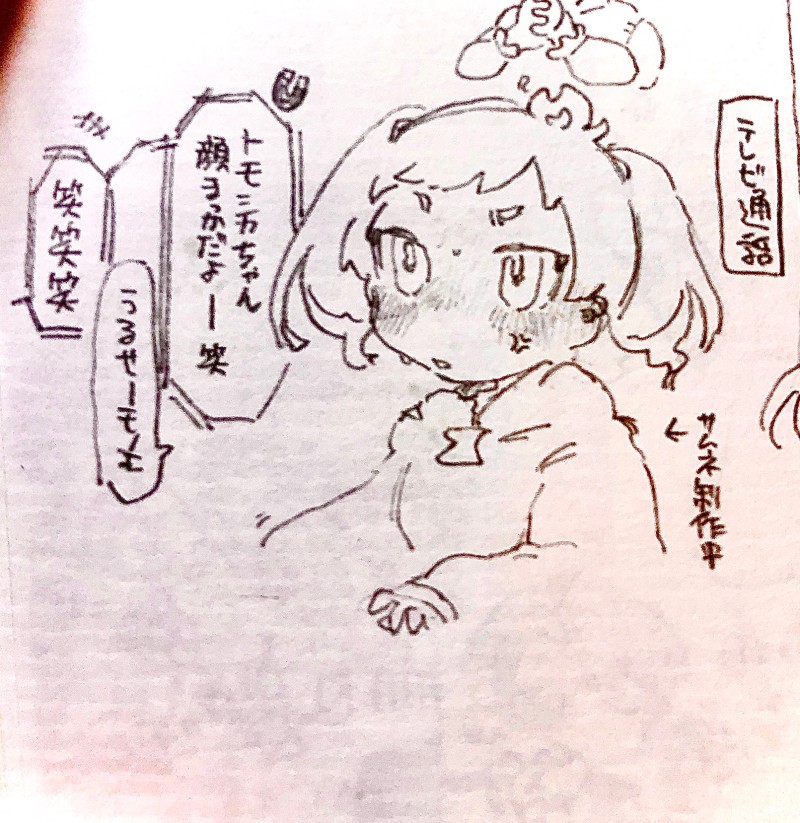 テレビ通話
←サムネ制作中
トモニカちゃん
顔まっかだよー笑
うるせーモモ
笑笑笑